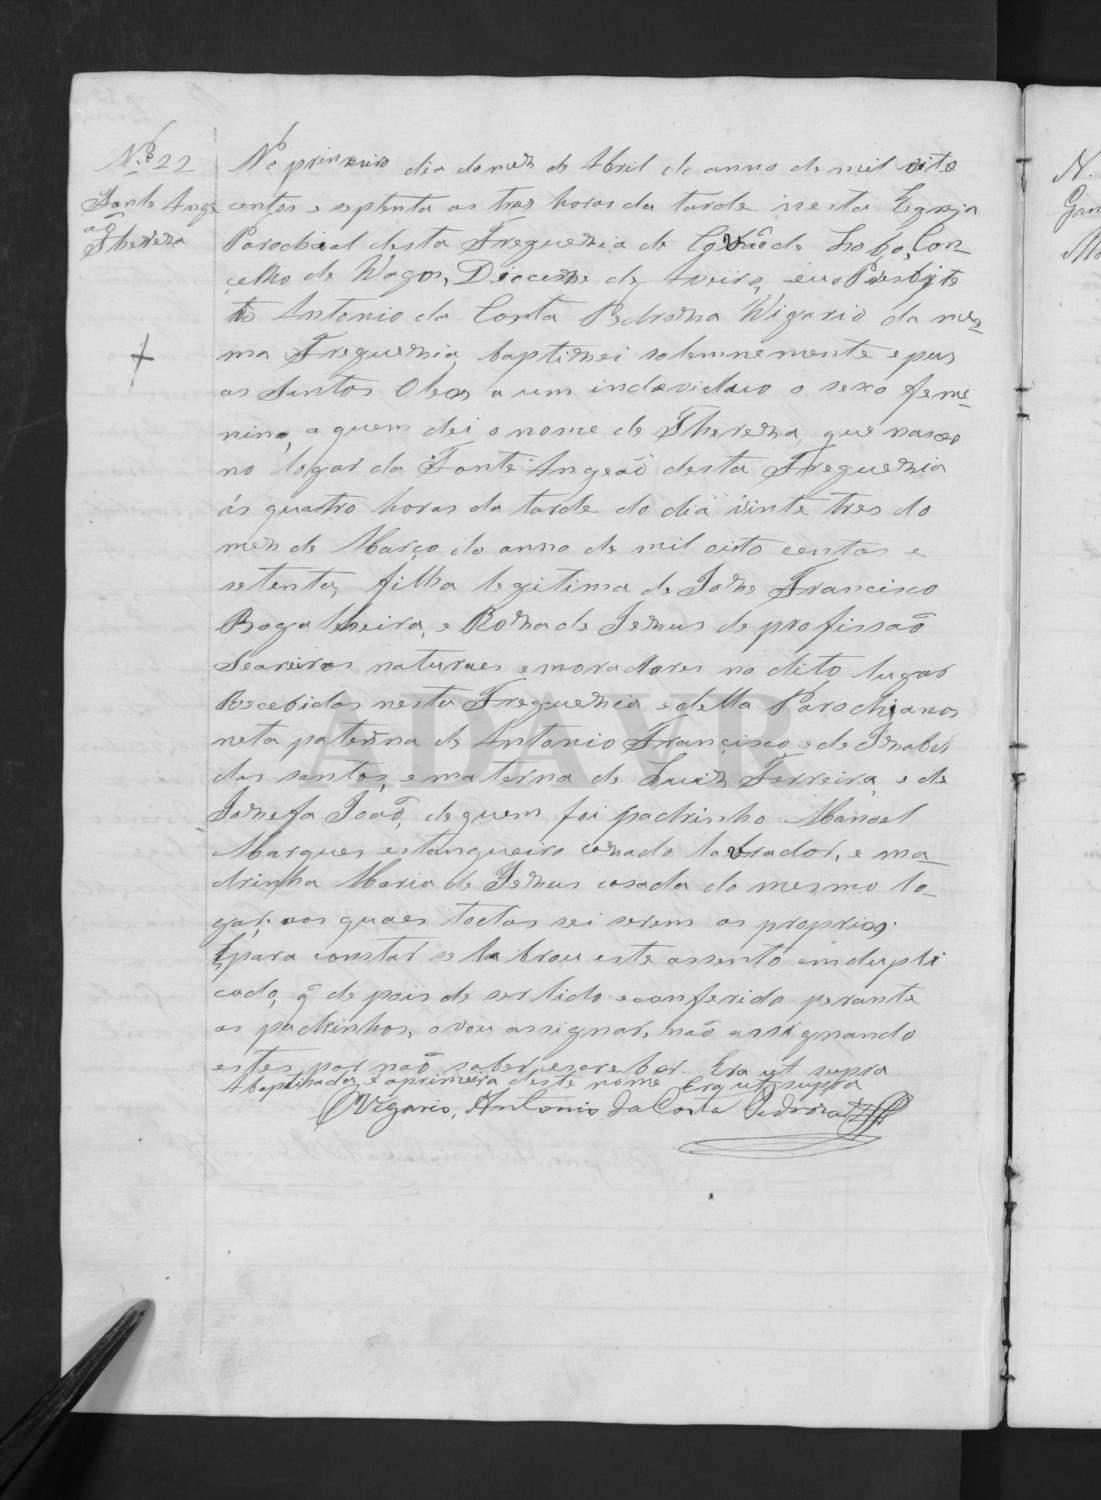 Nº 22
Fonte Ange
ão
Thereza
No primeiro dia do mez de Abril do anno de mil oito
centos e septenta as tres horas da tarde nesta Egreja
Parochial desta Freguezia de Covão do Lobo, Con-
celho de Vagos, Diocese de Aveiro, eu o Presbite
ro Antonio da Costa Pedroza Vigario da mes-
ma Freguezia, baptizei solemnemente e puz
os Santos Oleos a um individuo o sexo feme-
nino, a quem dei o nome de Thereza, que nasceo
no logar da Fonte Angeão desta Freguezia
ás quatro horas da tarde do dia vinte tres do
mez de Março do anno de mil oito centos e
setenta, filha legitima de Joze Francisco
Bogalheira, e Roza de Jezus de profissão
Seareiros naturaes e moradores no dito lugar
Recebidos nesta Freguezia e della Parochianos
neta paterna de Antonio Francisco, e de Izabel
dos santos, e materna de Luiz Ferreira, e de
Jozefa João, de quem foi padrinho Manoel
Marques estanqueiro cazado lavrador, e ma-
drinha Maria de Jezus casada do mesmo lo-
gar, aos quaes todos sei serem os proprios.
E para constar se lavrou este assento em dupli
cado, q̃ de pois de ser lido e conferido perante
os padrinhos, o vou assignar, não assignando
estes por não saber escrever. Era ut supra
A baptisada, é a primeira deste nome Era ut supra
O Vigario, Antonio da Costa Pedroza
ADAVR
N.